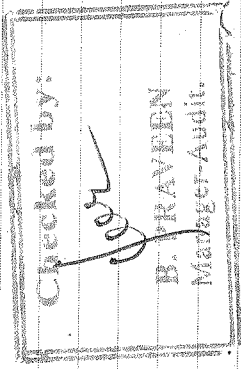 Checked by:
B. PRAVEEN
Manager-Audit.